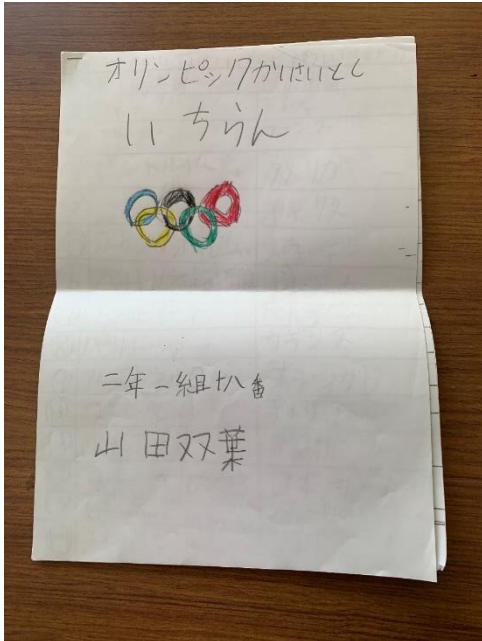 オリンピックかいさいとし
いちらん
二年一組十八番
山田双葉